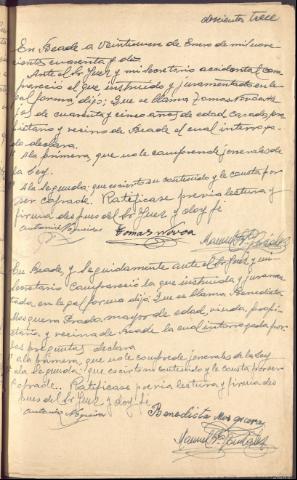 doscientos trece
En Beade a veintinueve de Enero de mil nove
cientos cuarenta y dos.
Ante el Sr Juez y mi Secretario accidental com
pareció el que instruido y juramentado en le
gal forma dijo: Que se llama Tomas Novoa
de cuarenta y cinco años de edad, casado, pro
pietario y vecino de Beade el cual interroga
do declara.
A la primera, que no le comprende generales de
la ley.
A la segunda: que es cierto su contenido y le consta por
ser Ratificase previa lectura y
firma despues del Sr Juez y doy fé
Antonio Nogueira
Tomas Novoa
Manuel
En Beade, y seguidamente ante el Sr Juez, y mi
Secretario Compareció la que instruida y juramen
tada en legal forma dijo: Que se llama Benedicta
Mosquera Prada, mayor de edad, viuda, propie
taria, y vecina de Beade la cual interrogada por
las preguntas declara
A la primera, que no le comprende generales de la ley
A la Segunda: que es cierto su contenido y le consta por ser
Ratificase previa lectura y firma des
pues del Sr Juez y doy fé
Antonio Nogueira
Benedicta Mosquera
Manuel